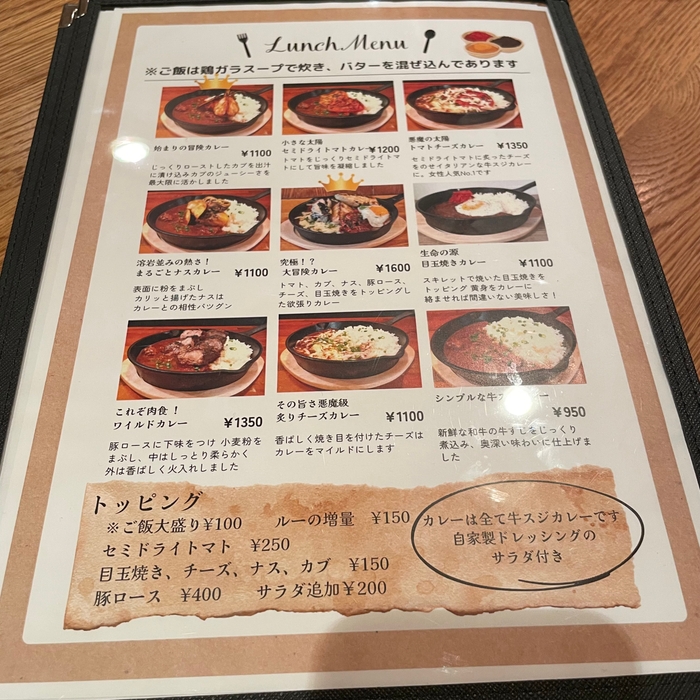 Lunch Menu
※ご飯は鶏ガラスープで炊き、バターを混ぜ込んであります
始まりの冒険カレー
¥1100
じっくりローストしたカブを出汁
に漬け込みカブのジューシーさを
最大限に活かしました
小さな太陽
セミドライトマトカレー
¥1200
トマトをじっくりセミドライトマ
トにして旨味を凝縮しました
悪魔の太陽
トマトチーズカレー
¥1350
セミドライトマトに炙ったチーズ
をのせイタリアンな牛スジカレー
に。女性人気No.1です
溶岩並みの熱さ！
まるごとナスカレー
¥1100
表面に粉をまぶし
カリッと揚げたナスは
カレーとの相性バツグン
究極！？
大冒険カレー
¥1600
トマト、カブ、ナス、豚ロース、
チーズ、目玉焼きをトッピングし
た欲張りカレー
生命の源
目玉焼きカレー
¥1100
スキレットで焼いた目玉焼きを
トッピング 黄身をカレーに
絡ませれば間違いない美味しさ！
これぞ肉食！
ワイルドカレー
¥1350
豚ロースに下味をつけ 小麦粉を
まぶし、中はしっとり柔らかく
外は香ばしく火入れしました
その旨さ悪魔級
炙りチーズカレー
¥1100
香ばしく焼き目を付けたチーズは
カレーをマイルドにします
シンプルな牛ス
¥950
新鮮な和牛の牛すじをじっくり
煮込み、奥深い味わいに仕上げま
した
トッピング
※ご飯大盛り¥100 ルーの増量 ¥150
セミドライトマト ¥250
目玉焼き、チーズ、ナス、カブ ¥150
豚ロース ¥400 サラダ追加¥200
カレーは全て牛スジカレーです
自家製ドレッシングの
サラダ付き